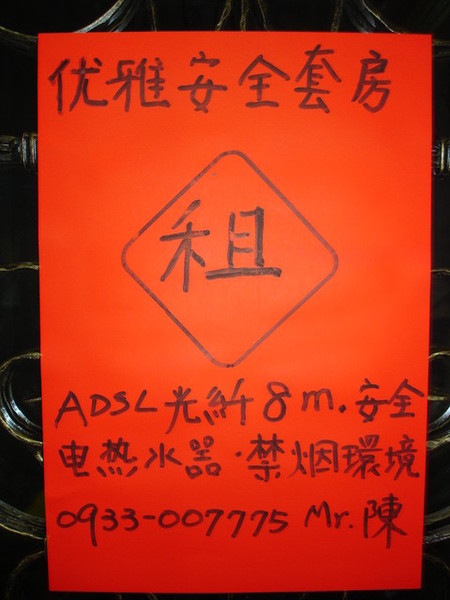 优雅安全套房
租
ADSL光紆8m.安全
电热水器·禁烟環境
0933-007775 Mr.陳